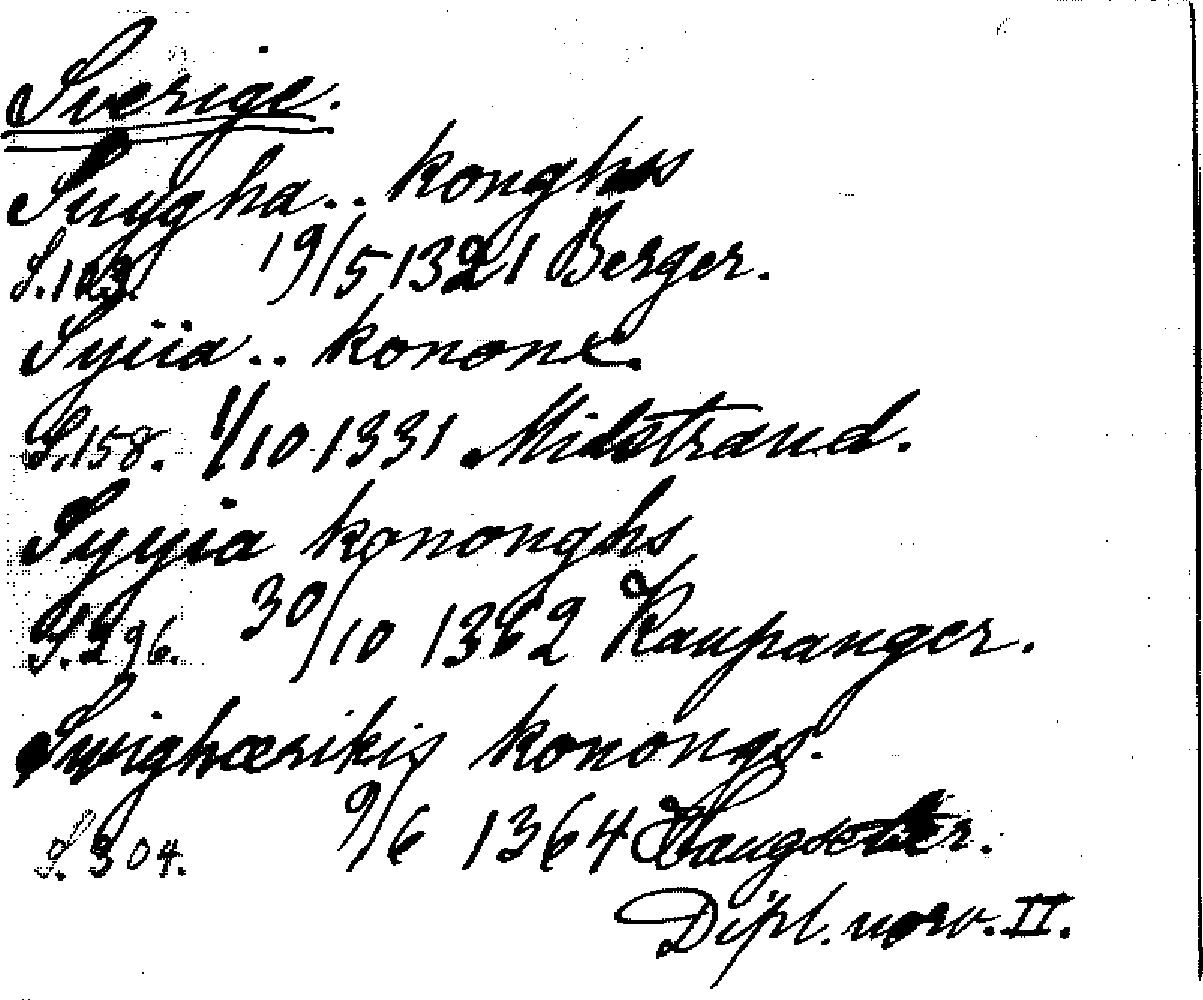 Sverige.
Suygha.. konghs
S. 103. 19/5 1321 Berger.
Syiia.. konone.
S. 158. 1/10 1331 Midstrand.
Syyia kononghs
S. 296. 30/10 1362 Kaupanger.
Swighœrikis konongs.
S. 304. 9/6 1364
Dipl. norv. II.